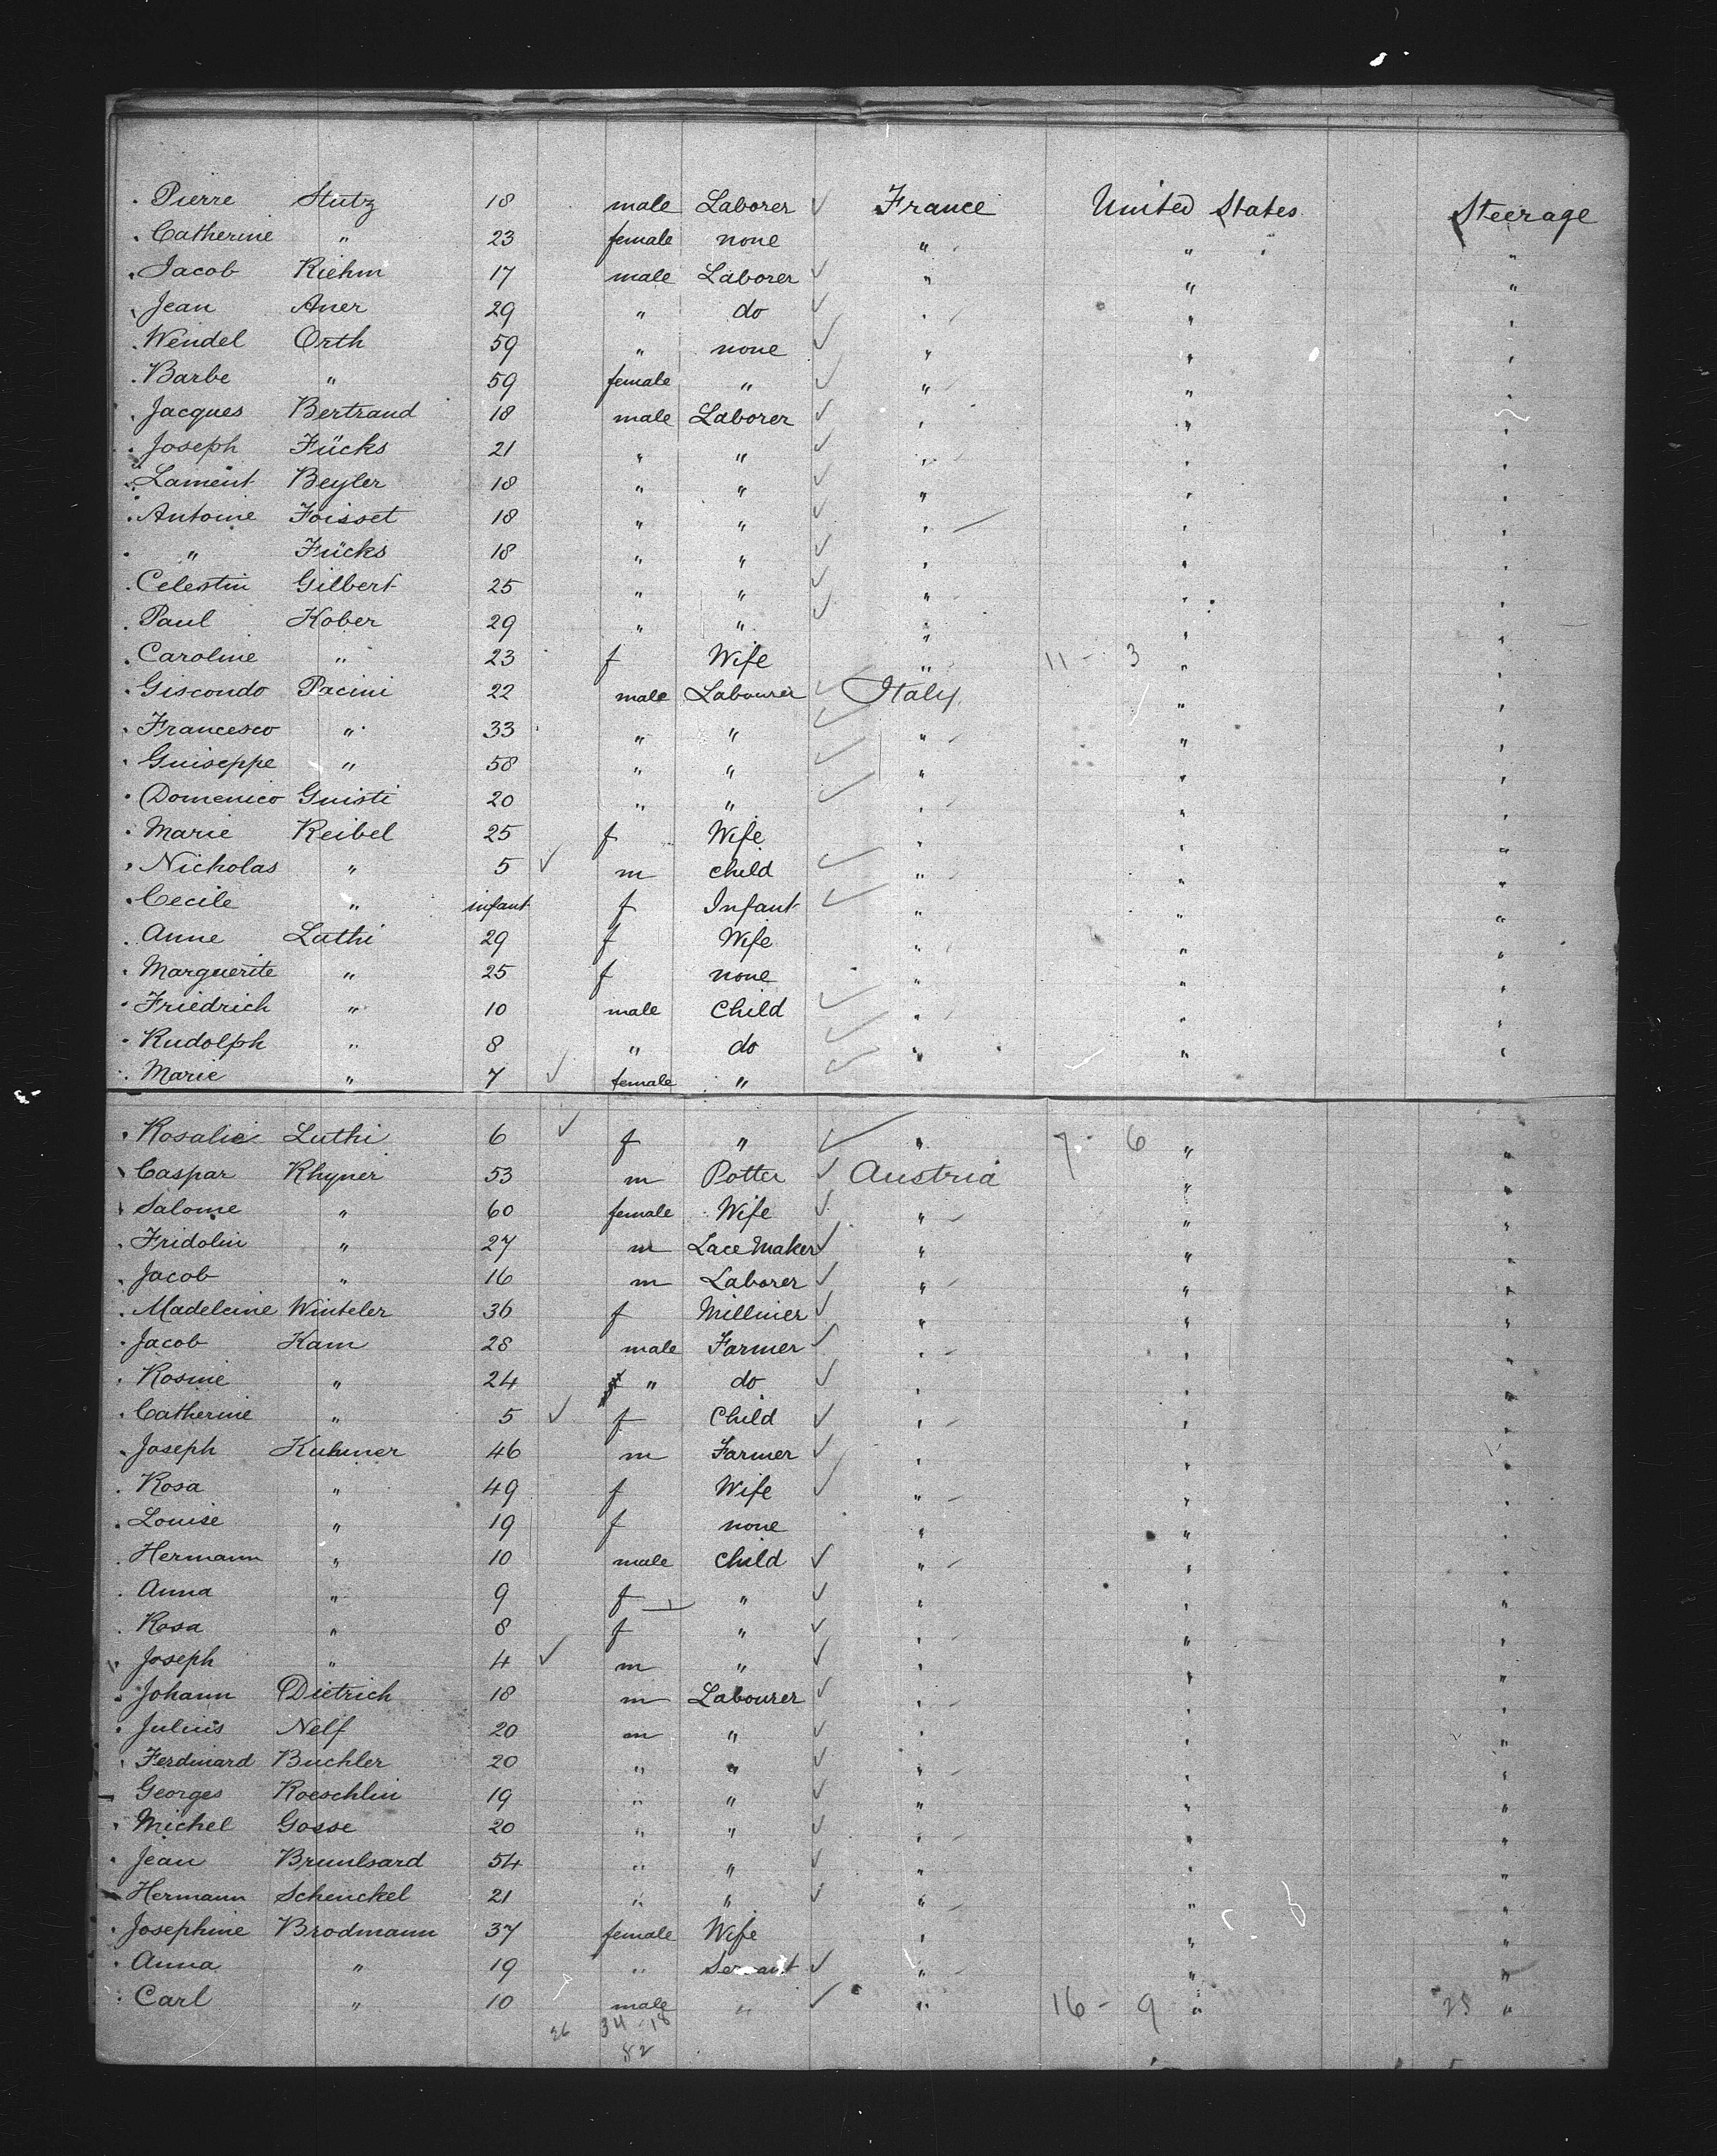 Pierre Stutz 18 male Laborer France United States Steerage
Catherine " 23 female none " " "
Jacob Riehm 17 male Laborer " " "
Jean Auer 29 " do " " "
Wendel Orth 59 " none " " "
Barbe " 59 female " " " "
Jacques Bertrand 18 male Laborer " " "
Joseph Fücks 21 " " " " "
Lament Beyler 18 " " " " "
Antoine Foisset 18 " " " " "
" Fücks 18 " " " " "
Celestin Gilbert 25 " " " " "
Paul Kober 29 " " " " "
Caroline " 23 f Wife " 11 - 3 " "
Giscondo Pacini 22 male Labourer Italy " "
Francesco " 33 " " " " "
Guiseppe " 58 " " " " "
Domenico Guisti 20 " " " " "
Marie Reibel 25 f Wife " " "
Nicholas " 5 m child " " "
Cecile " infant f Infant " " "
Anne Luthi 29 f Wife " " "
Marguerite " 25 f none " " "
Friedrich " 10 male Child " " "
Rudolph " 8 " do " " "
Marie " 7 female "
Rosalie Luthi 6 f " " 7 - 6 " "
Caspar Rhyner 53 m Potter Austria " "
Salome " 60 female Wife " " "
Fridolin " 27 m Lace Maker " " "
Jacob " 16 m Laborer " " "
Madeleine Winteler 36 f Millinier " " "
Jacob Kam 28 male Farmer " " "
Rosine " 24 " do " " "
Catherine " 5 f Child " " "
Joseph Kuhner 46 m Farmer " " "
Rosa " 49 f Wife " " "
Louise " 19 f none " " "
Hermann " 10 male child " " "
Anna " 9 f " " " "
Rosa " 8 f " " " "
Joseph " 4 m " " " "
Johann Dietrich 18 m Labourer " " "
Julius Nelf 20 m " " " "
Ferdinard Buchler 20 " " " " "
Georges Koeschlin 19 " " " " "
Michel Gosse 20 " " " " "
Jean Brunlsard 54 " " " " "
Hermann Schenckel 21 " " " " "
Josephine Brodmann 37 female Wife " " "
Anna " 19 " Servant " " "
Carl " 10 male " " 16 - 9 " 25 "
26 34 - 18
82